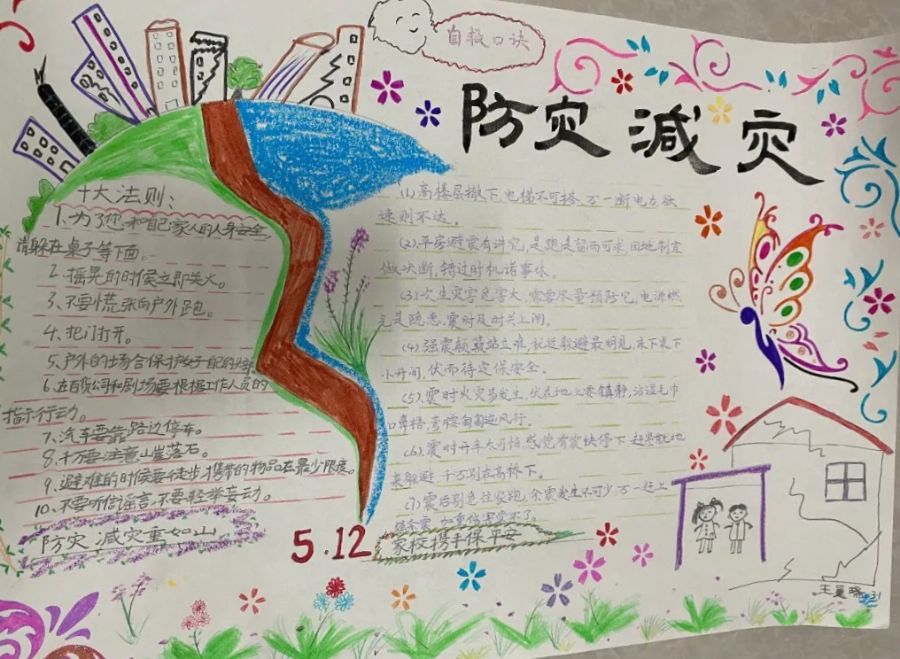 自救口诀
防灾减灾
十大法则:
1.为了您和自己家人的人身安全,
请躲在桌子等下面。
2.摇晃的时候立即关火。
3.不要慌张向户外跑。
4.把门打开。
5.户外的场合保护好自己的头部
6.在百货公司和剧场要根据工作人员的
指示行动。
7.汽车要靠路边停车。
8.千万要注意山崖落石。
9.避难的时候要徒步,携带的物品在最少限度。
10.不要听信谣言,不要轻举妄动。
防灾减灾重如山
(1)高楼层撤下,电梯不可搭,万一断电力欲
速则不达。
(2)平房避震有讲究,是跑是留两可求,因地制宜
做决断,错过时机诸事休。
(3)次生灾害危害大,需要尽量预防它,电源燃
气是隐患,震时及时关上闸。
(4)强震颠簸站立难,就近躲避最明见,床下桌下
小开间,伏而待定保安全。
(5)震时火灾易发生,伏在地上要镇静,沾湿毛巾
口鼻捂,弯腰匍匐逆风行。
(6)震时开车太可怕,感觉有震快停下,赶紧就地
来躲避,千万别在高桥下。
(7)震后别急往家跑,余震发生不可少,万一赶上
5.12
家校携手保平安